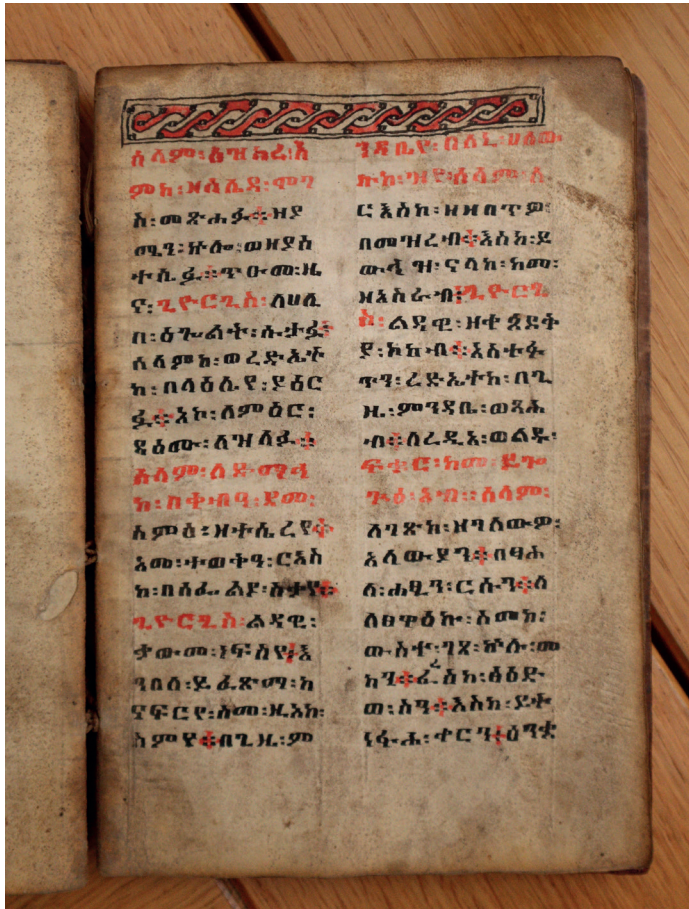 ሰላም፡ለዝክረ፡ስ
ምከ፡ዘሰሌዳ፡ሞገ
ስ፡መጽሐፉ፨ዘያ
ሜኒ፡ኵሎ፡ወዘያስ
ተሴፉ፨ጥዑመ፡ዜ
ና፡ጊዮርጊስ፡ለሀሊ
በ፡ዕጐልት፡ሱታፉ፨
ሰላምከ፡ወረድኤት
ከ፡በላዕሌየ፡ያዕር
ፉ፨አኮ፡ለምዕር፡
ዳዕሙ፡ለዝላፉ፨
ሰላም፡ለድማሕ
ከ፡በቅብዓ፡ደመ፡
ስምዕ፡ዘተሴረየ፨
አመ፡ተወቀዓ፡ርእስ
ከ፡በሰፌልያ፡
ጊዮርጊስ፡ልዳዊ፡
ቃውመ፡ነፍስየ፨እ
ንበለ፡ይፈጽማ፡ከ
ናፍርየ፡ስመ፡ዚአከ፡
ስምየ፨ብጊዜ፡ም
ንዳቤየ፡በለኒ፡ሀለው
ኩከ፡ዝየ፡ሰላም፡ለ
ርእስከ፡ዘዘበጥዎ፡
በመዝረብ፨እስከ፡ደ
ውለ፡ዝ፡ናላከ፡ከመ፡
ዘአስራብ፨ጊዮርጊ
ስ፡ልዳዊ፡
ኮከብ፨አስተፋ
ጥን፡ረድኤተከ፡በጊ
ዜ፡ምንዳቤ፡ወጻሕ
ብ፨ለረዲአ፡ወልዱ፡
ፍጡር፡ከመ፡ይጐ
ጕዕ፡አብ፡፡ሰላም፡
ለገጽከ፡ዘገሰውዎ፡
አላውያን፨በፃሕ
ል፡ሐፂን፡ርሱን፨ለ
ለፀዋዕኩ፡ስመከ፡
ውስተ፡ገጸ፡ኵሉ፡መ
ካን፨ፅዕድ
ወ፡ስን፨እስከ፡ይት
ነፋሕ፡ቀርን፨ዕንቋ